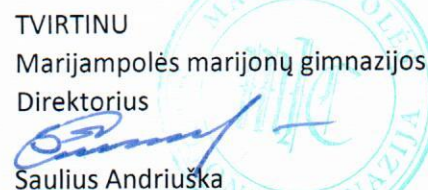 TVIRTINU
Marijampolės marijonų gimnazijos
Direktorius
Saulius Andriuška